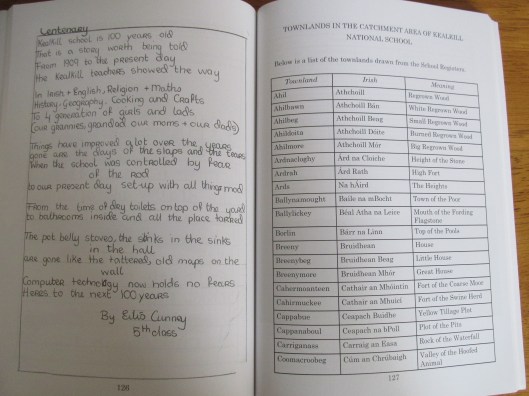 Centenary
Kealkill school is 100 years old
That is a story worth being told
From 1909 to the present day
the Kealkill teachers showed the way
In Irish + English, Religion + Maths
History, Geography, Cooking and Crafts
To 4 generation of girls and lads
(our grannies, grandad our moms + our dads)
Things have improved a lot over the years
gone are the days of the slaps and the tears
When the school was controlled by fear
of the rod
to our present day set-up with all things mod
From the time of dry toilets on top of the yard
to bathrooms inside and all the place tarred
The pot belly stoves, the stinks in the sinks
in the hall
are gone like the tattered, old maps on the
wall
Computer technology now holds no fears
Heres to the next 100 years
By Eilís Cunney
5th class
126
TOWNLANDS IN THE CATCHMENT AREA OF KEALKILL
NATIONAL SCHOOL
Below is a list of the townlands drawn from the School Registers.
Townland Irish Meaning
Ahil Athchoill Regrown Wood
Ahilbawn Athchoill Bán White Regrown Wood
Ahilbeg Athchoill Beag Small Regrown Wood
Ahildotia Athchoill Dóite Burned Regrown Wood
Ahilmore Athchoill Mór Big Regrown Wood
Ardnacloghy Árd na Cloiche Height of the Stone
Ardrah Árd Rath High Fort
Ards Na hÁird The Heights
Ballynamought Baile na mBocht Town of the Poor
Ballylickey Béal Átha na Leice Mouth of the Fording
Flagstone
Borlin Bárr na Linn Top of the Pools
Breeny Bruidhean House
Breenybeg Bruidhean Beag Little House
Breenymore Bruidhean Mhór Great House
Cahermoanteen Cathair an Mhóintín Fort of the Coarse Moor
Cahirmuckee Cathair an Mhuicí Fort of the Swine Herd
Cappabue Ceapach Buidhe Yellow Tillage Plot
Cappanaboul Ceapach na bPoll Plot of the Pits
Carriganass Carraig an Easa Rock of the Waterfall
Coomacroobeg Cúm an Chrúbaigh Valley of the Hoofed
Animal
127